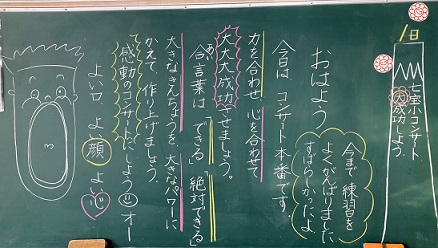 1日
七宝小コンサート
大成功しよう。
おはよう
今まで練習を
よくがんばりました
すばらしかったよ
今日は コンサート本番です。
力を合わせ 心を合わせて
大大大成功させましょう。
合言葉は「できる」「絶対できる」
大きなきんちょうを、大きなパワーに
かえて、作り上げましょう。
感動のコンサートにしよう オー
よい口 よい顔 よい